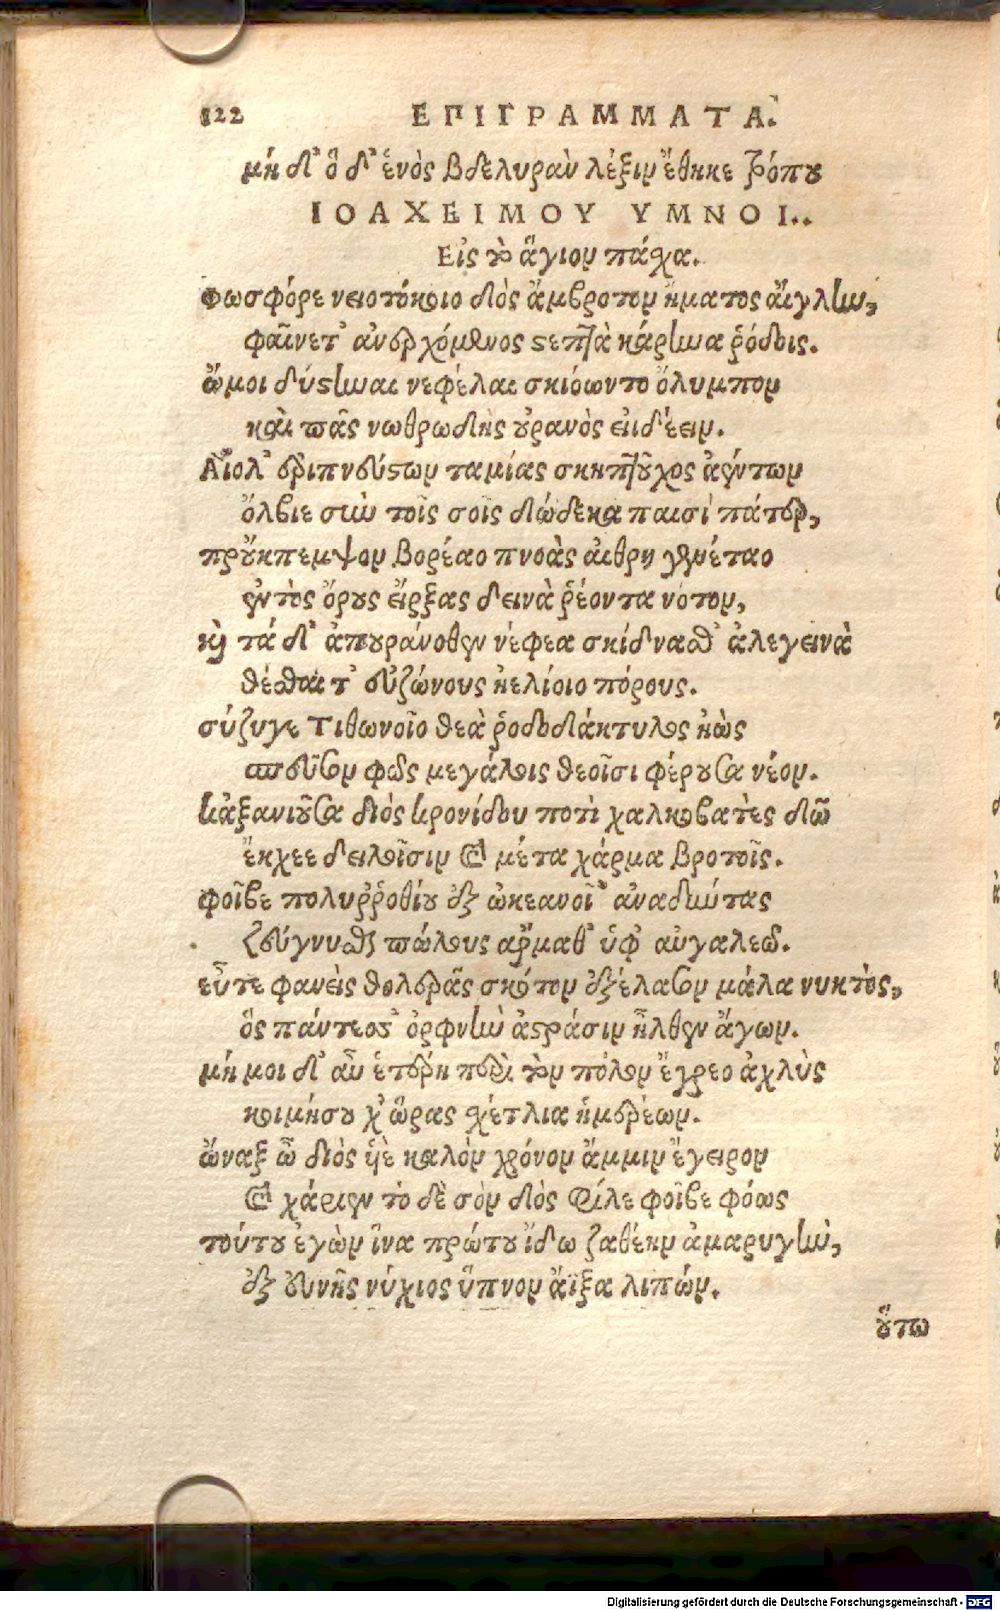 122 ΕΠΙΓΡΑΜΜΑΤΑ.
μή δ' ὅ δ' ἑνὸς βδελυρὰν λέξιν ἔθηκε τρόπου
ΙΟΑΧΕΙΜΟΥ ΥΜΝΟΙ..
Εἰς τὸ ἅγιον πάσχα.
Φωσφόρε νειοτόκοιο διὸς ἄμβροτον ἤματος αἴγλην,
φαίνετ' ἀνερχόμενος στεπτὰ κάρηνα ῥόδοις.
ὤμοι δύστηναι νεφέλαι σκιόωντο ὄλυμπον
καὶ πᾶς νωθρώδης οὐρανὸς εἰιδέειν.
Αἴολ' ἐριπνεύστων ταμίας σκηπτοῦχος ἀέντων
ὄλβιε σὺν τοῖς σοῖς δώδεκα παισὶ πάτερ,
προὔκπεμψον βορέαο πνοὰς αἰθρηγενέταο
ἐντὸς ὄρους εἴρξας δεινὰ ῥέοντα νότον,
καὶ τά δ' ἀπουράνοθεν νέφεα σκίδνασθ' ἀλεγεινὰ
θέσθαι τ' εὐζώνους ἠελίοιο πόρους.
σύζυγε Τιθωνοῖο θεὰ ῥοδοδάκτυλος ἠὼς
σπεῦσον φῶς μεγάλοις θεοῖσι φέρουσα νέον.
κἀξανιοῦσα διὸς κρονίδου ποτὶ χαλκοβατὲς δῶ
ἔκχεε δειλοῖσιν καὶ μέτα χάρμα βροτοῖς.
φοῖβε πολυῤῥοθίου ἐξ ὠκεανοῖ' ἀναδύντας
ζεύγνυσθι πώλους ἅρμαθ' ὑφ' αὐγαλεῷ.
εὖτε φανεὶς θολερᾶς σκότον ἐξέλασον μάλα νυκτὸς,
ὃς πάντεσσ' ὀρφνὴν ἀστράσιν ἦλθεν ἄγων.
μή μοι δ' αὖ ἑτέρη περὶ τὸν πόλον ἔγρεο ἀχλὺς
κοιμήσου χ' ὥρας σχέτλια ἡμερέων.
ὦναξ ὦ διὸς υἱὲ καλὸν χρόνον ἄμμιν ἔγειρον
καὶ χάριεν τὸ δὲ σὸν διὸς φίλε φοῖβε φόως
τούτου ἐγὼν ἵνα πρώτου ἴδω ζαθέην ἀμαρυγὴν,
ἐξ εὐνῆς νύχιος ὕπνον ἄϊξα λιπών.
οὕτω
Digitalisierung gefördert durch die Deutsche Forschungsgemeinschaft - DFG